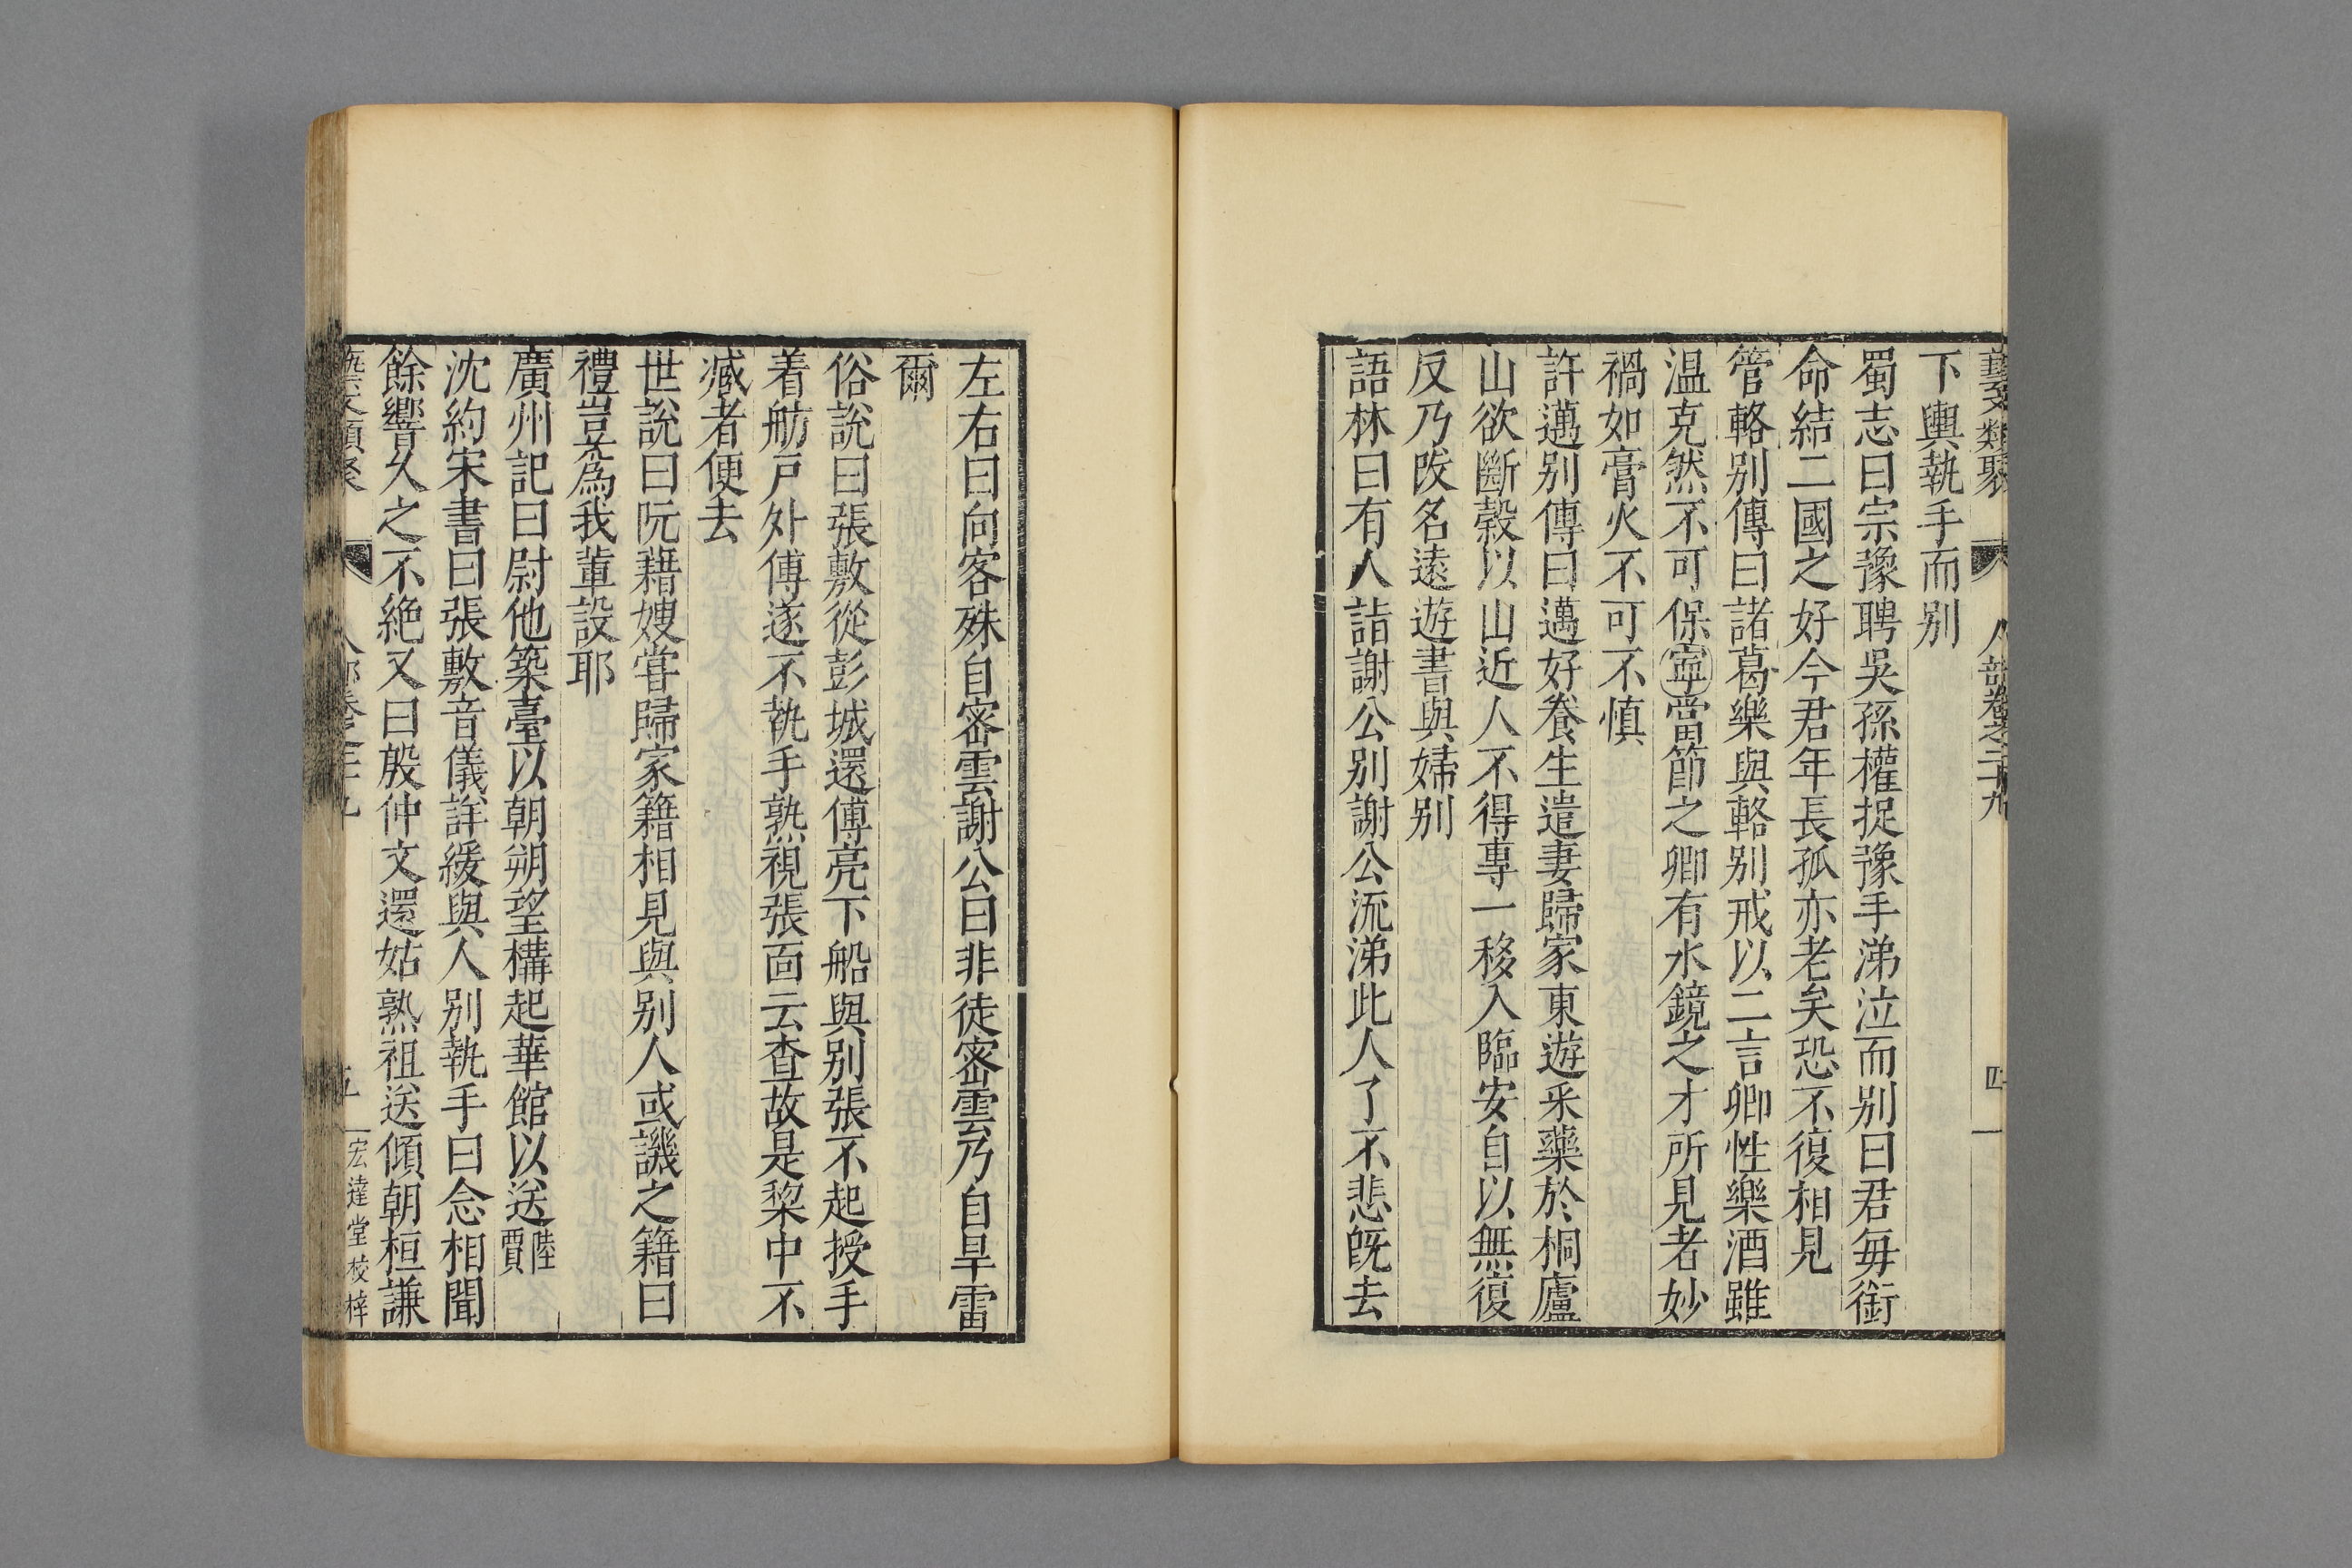 藝文類聚 人部卷之二十九 四
下輿執手而别
蜀志曰宗豫聘吳孫權捉豫手涕泣而别曰君每銜
命結二國之好今君年長孤亦老矣恐不復相見
管輅别傳曰諸葛樂與輅别戒以二言卿性樂酒雖
温克然不可保寧當節之卿有水鏡之才所見者妙
禍如膏火不可不慎
許邁别傳曰邁好養生遣妻歸家東遊采藥於桐廬
山欲斷穀以山近人不得專一移入臨安自以無復
反乃改名遠遊書與婦别
語林曰有人詣謝公别謝公流涕此人了不悲旣去
左右曰向客殊自密雲謝公曰非徒密雲乃自旱雷
爾
俗說曰張敷從彭城還傅亮下船與别張不起授手
着舫戸外傅遂不執手熟視張面云查故是棃中不
臧者便去
世說曰阮籍嫂甞歸家籍相見與别人或譏之籍曰
禮豈爲我軰設耶
廣州記曰尉他築臺以朝朔望構起華館以送陸賈
沈約宋書曰張敷音儀詳緩與人别執手曰念相聞
餘響久之不絶又曰殷仲文還姑熟祖送傾朝桓謙
藝文類聚 人部卷之二十九 五 宏達堂校梓